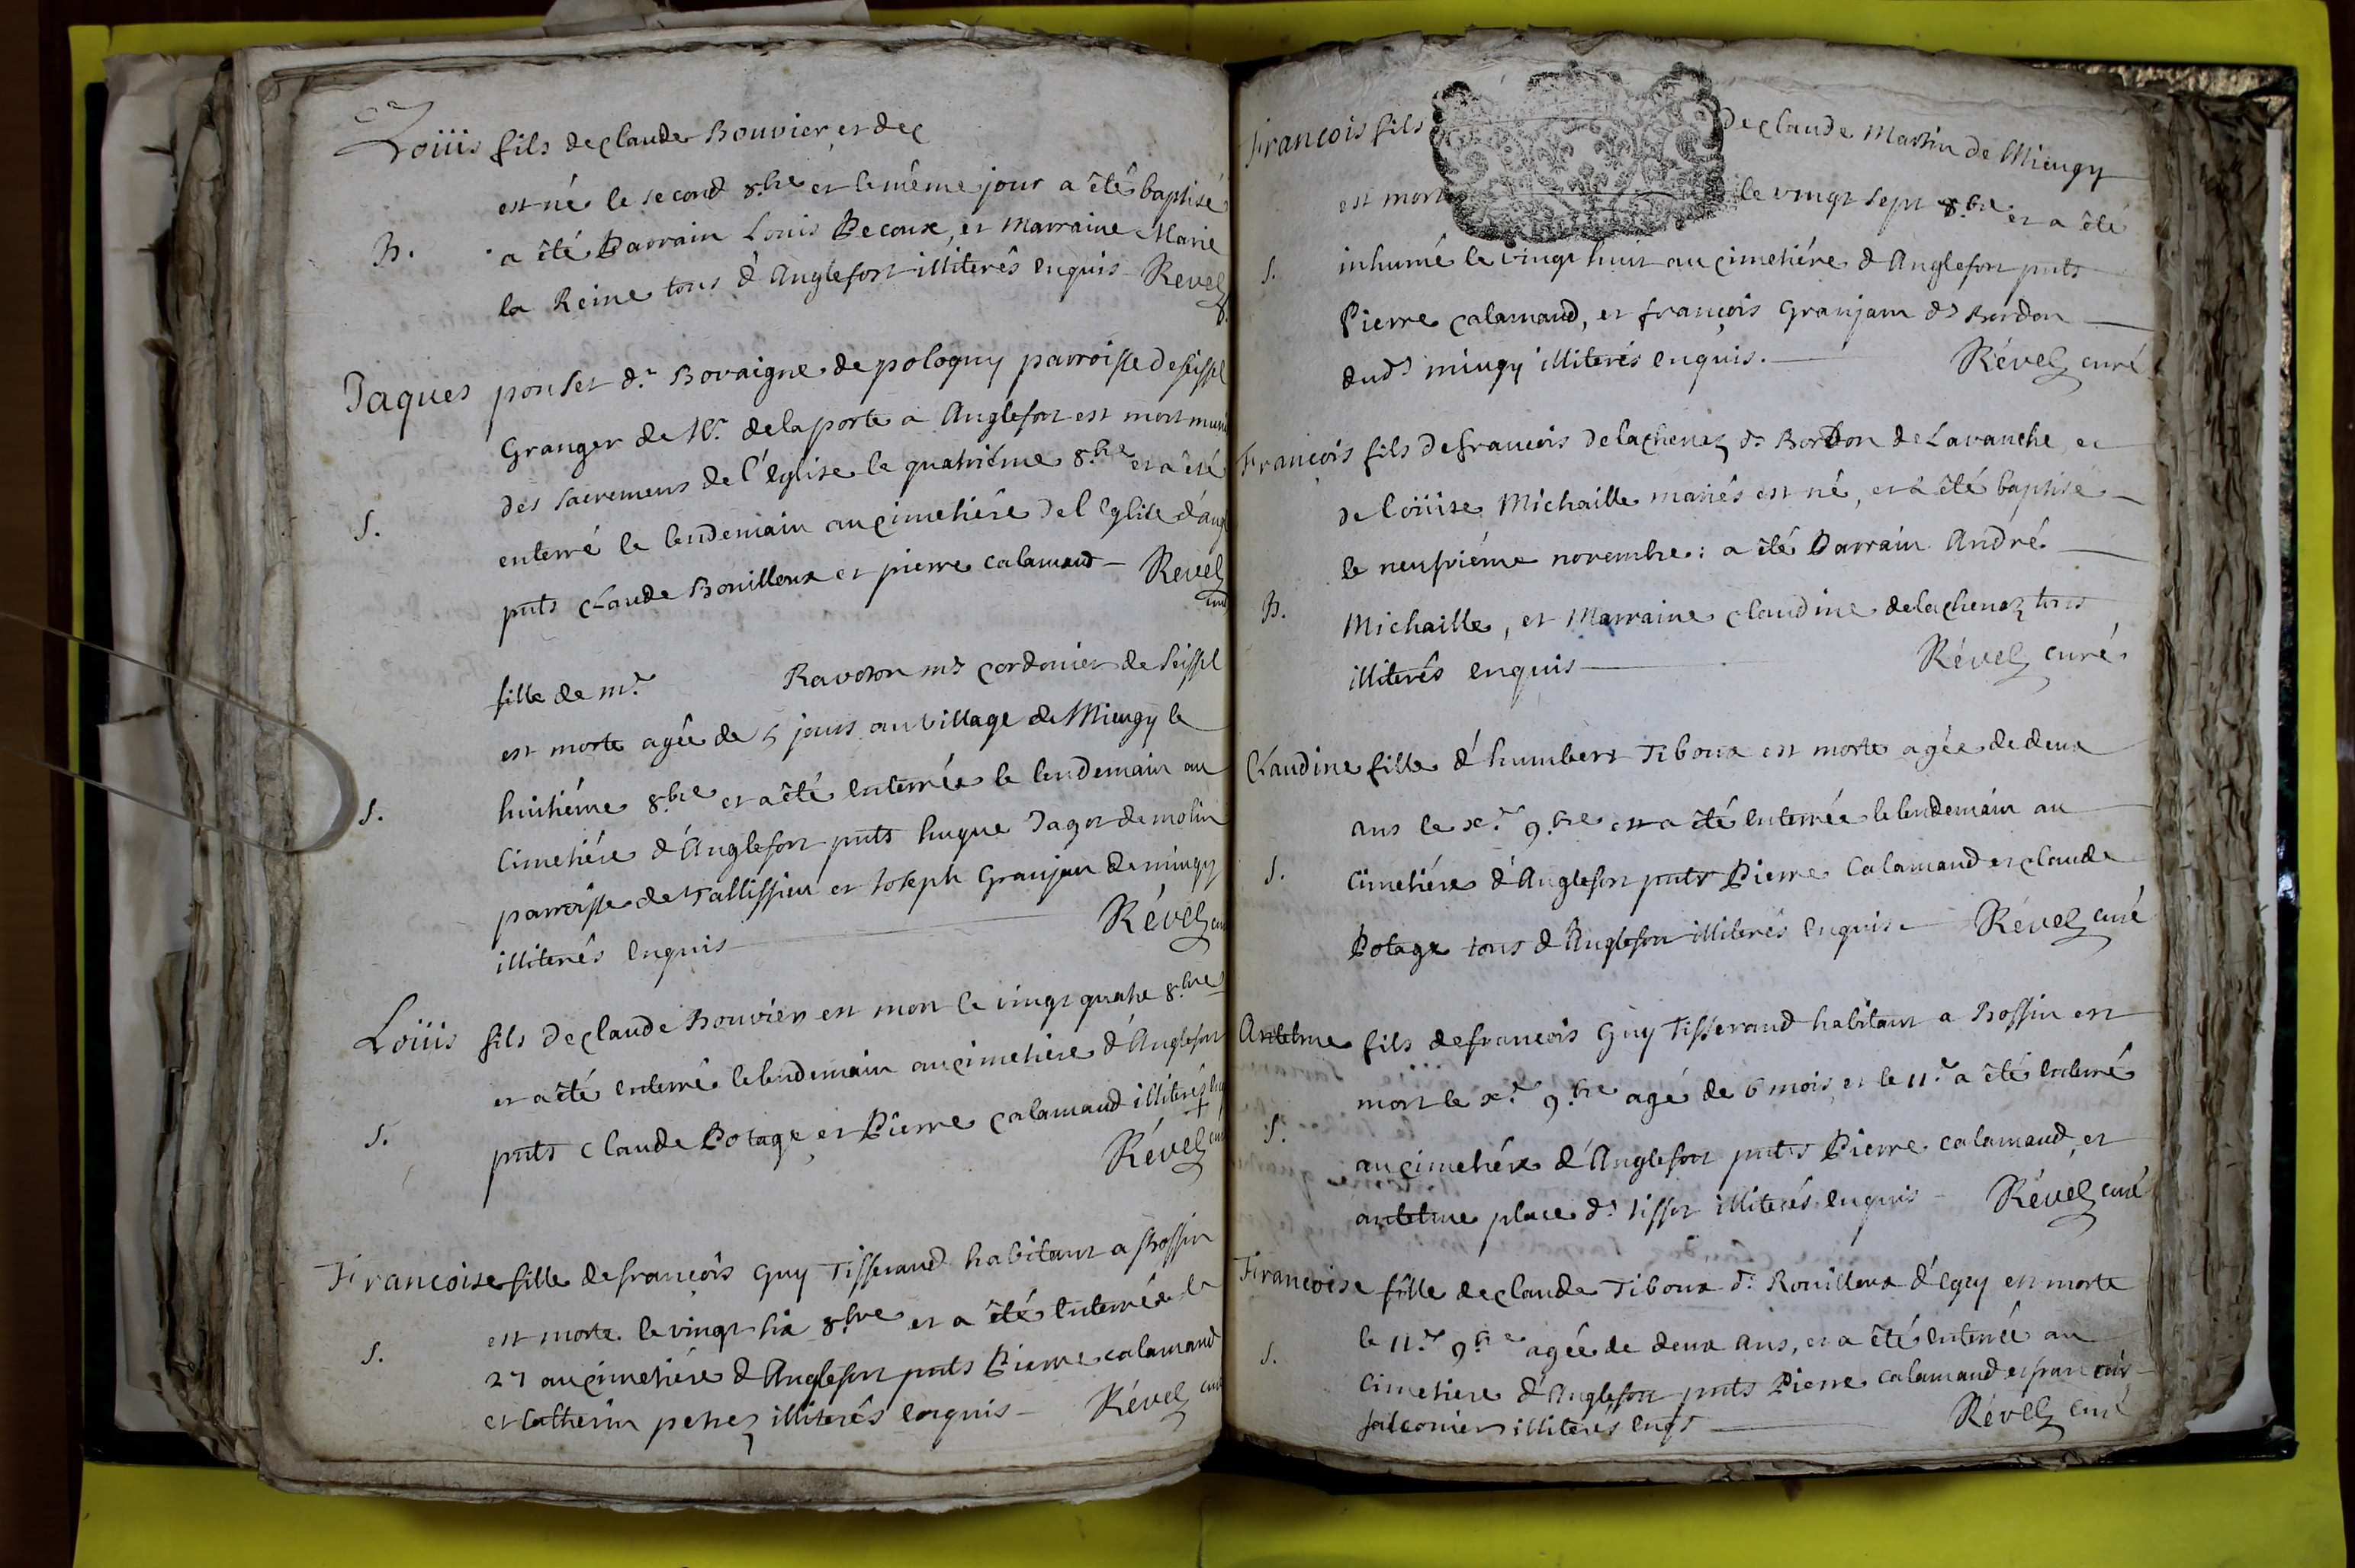 Loüis fils de claude Bouvier et de c
est né le second 8.bre et le même jour a êté baptisé
B. a êté Parrain Louis Decoux, et Marraine Marie
la Reine tous d'Anglefort illiterês enquis Revel
Jaques ponset d.t Bovaigne de pologny parroisse de seissel
Granger de Mr. de la porte a Anglefort est mort muni
des sacremens de l'église le quatriéme 8.bre et a eté
S. enterré le lendemain au cimetiére de l'église d'ang
pnts Claude Bouilloux et pierre calamand — Revel
fille de m.e Ravoson m.e cordonier de seissel
est morte agée de 5 jours au village de Mieugy le
S. huitiéme 8.bre et a êté enterrée le lendemain au
cimetiére d'Anglefort pnts hugue Jagot de molin
parroisse de Tallissieu et Joseph Granjan de miugy
illiterês enquis — Révél curé
Loüis fils de claude Bouvier est mort le vingt quatre 8.bre
et a êté enterré le lendemain au cimetiere d'Anglefort
S. pnts claude Potage et Pierre calamand illiterés
Révél curé
Francoise fille de francois Guy Tisserand habitant a Bossin
est morte le vingt six 8.bre et a êté enterrée le
S. 27 au cimetiére d'Anglefort pnts Pierre calamand
et Catherin petrez illiterés enquis — Révél curé
Francois fils de Claude Martin de Mieugy
est mort le vingt sept 8.bre et a êté
S. inhumé le vingt huit au cimetiére d'Anglefort pnts
Pierre Calamand, et françois Granjam d.t Bordon —
dud.t miugy illiterés enquis. — Révél curé
François fils de francois delachenez d.t Bordon de Lavanche, et
de loüise Michaille mariés est né, et a êté baptisé —
le neufviéme novembre: a êté Parrain André —
B. Michaille, et Marraine claudine delachenaz tous
illiterés enquis — Révél curé.
Claudine fille d'humbert Tiboux est morte agée de deux
ans le x.e 9.bre et a êté enterrée le lendemain au
S. cimetiére d'Anglefort pnts Pierre Calamand et claude
Potage tous d'Anglefort illiterés enquis — Révél curé
Antelme fils de francois Guy Tisserand habitant a Bossin est
mort le x.e 9.bre agé de 6 mois, et le 11.e a êté enterré
S. au cimetiére d'Anglefort pnts Pierre calamand, et
antelme place d.t tissot illiterés enquis — Révél curé
Francoise fille de claude Tiboux d.t Rouilloux d'égzy est morte
le 11.e 9.bre agée de deux ans, et a êté enterrée au
S. cimetiere d'Anglefort pnts Pierre calamand et francois
falconier illiteres enqs — Révél curé